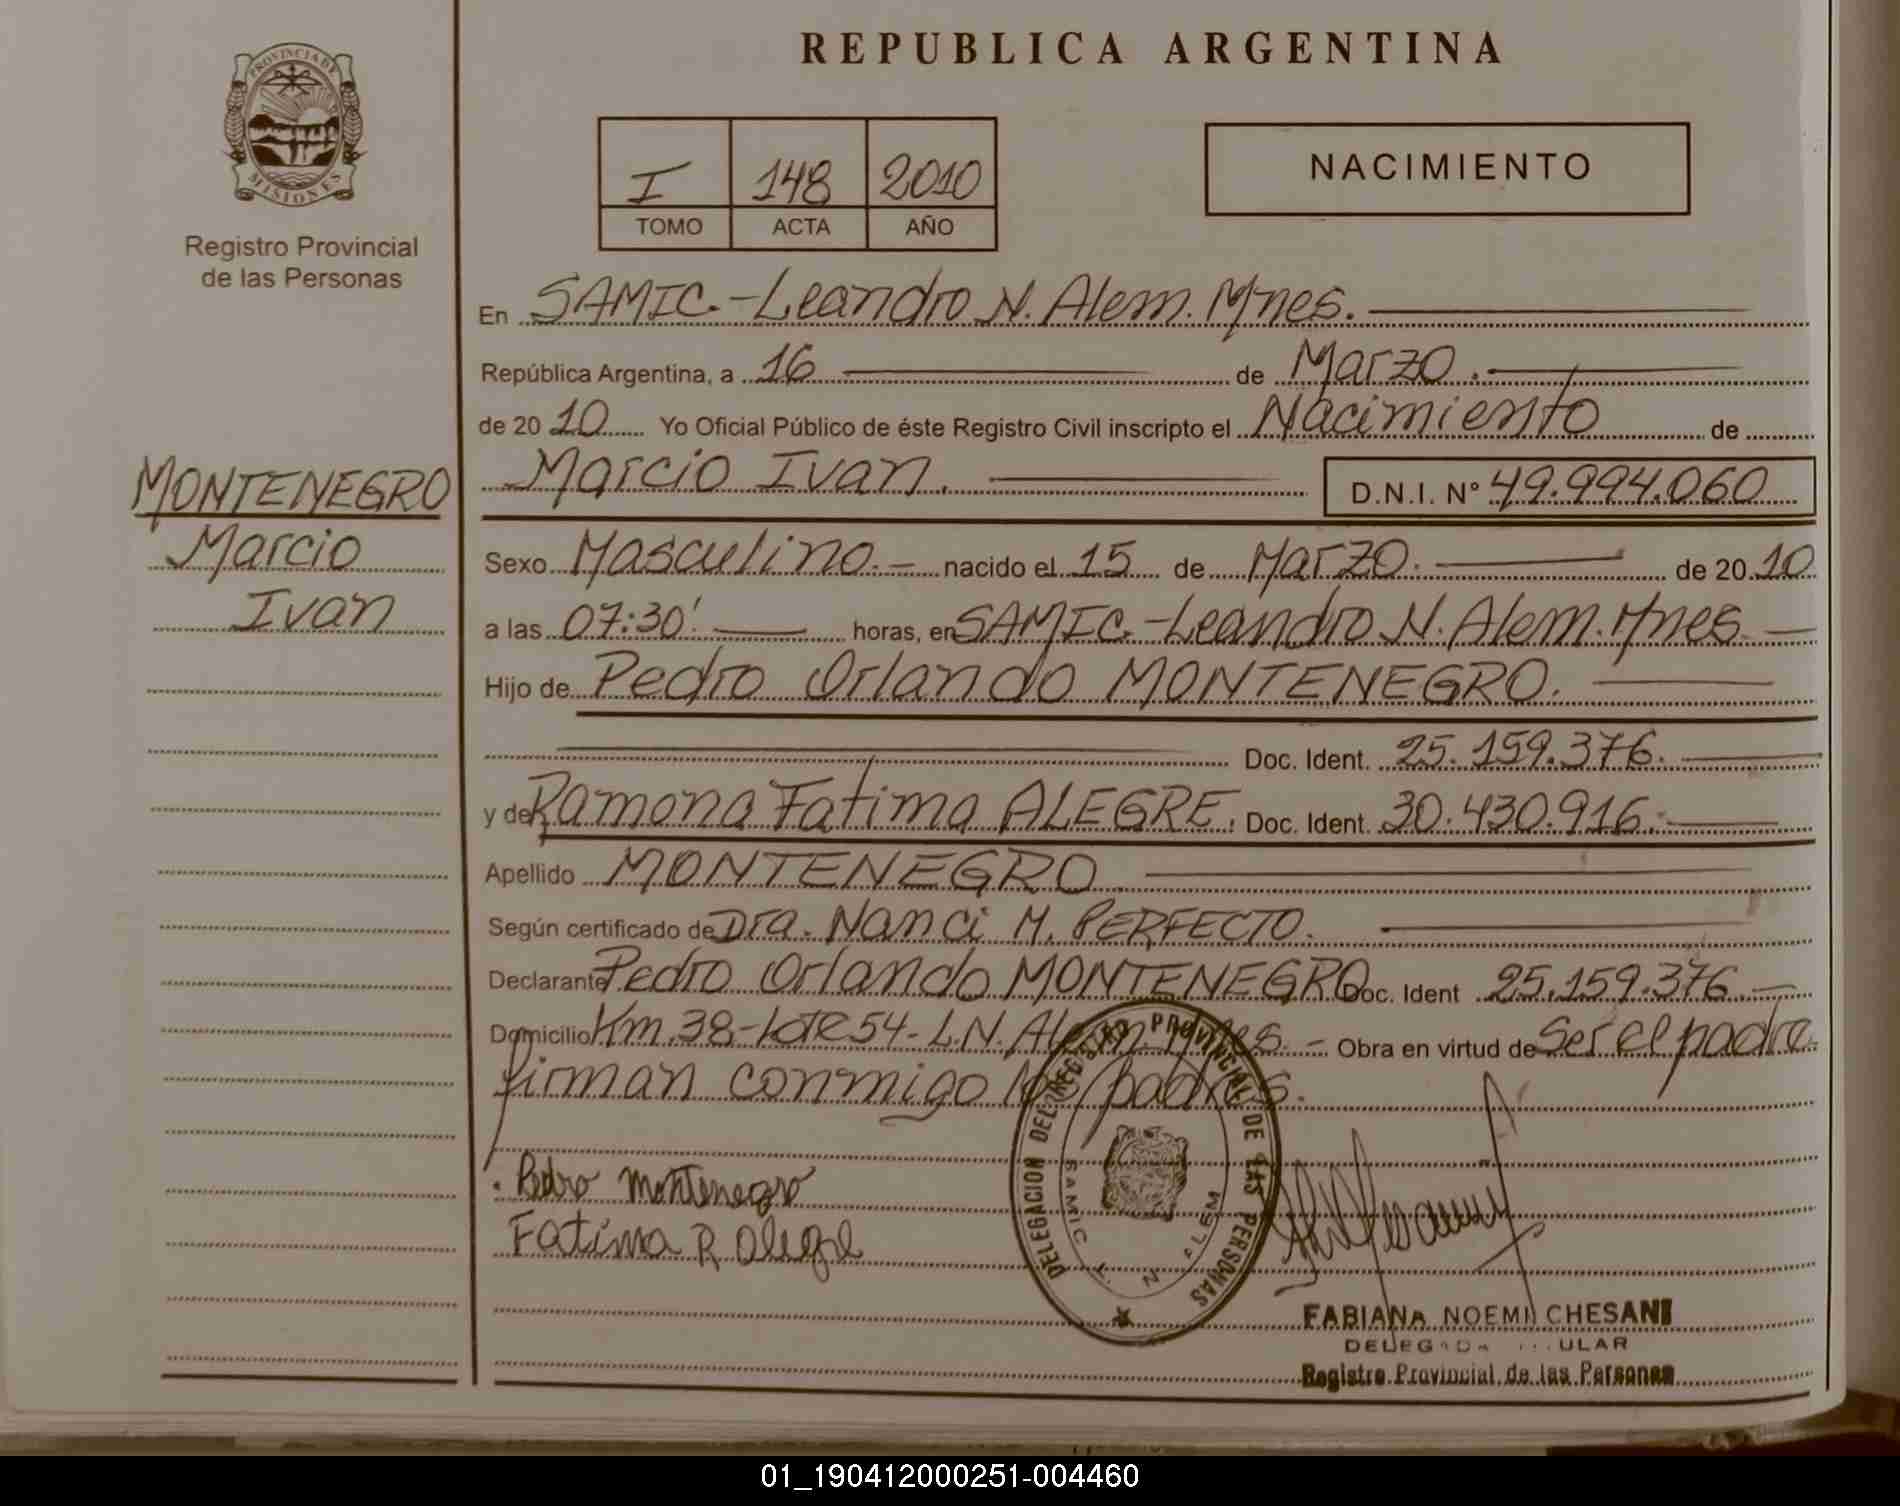 REPUBLICA ARGENTINA
PROVINCIA DE
MISIONES
Registro Provincial
de las Personas
I 148 2010
TOMO ACTA AÑO
NACIMIENTO
En SAMIC.-Leandro N. Alem. Mnes.
República Argentina, a 16 de Marzo.
de 20 10 Yo Oficial Público de éste Registro Civil inscripto el Nacimiento de
Marcio Ivan. D.N.I. N° 49.994.060
MONTENEGRO
Marcio
Ivan
Sexo Masculino.- nacido el 15 de Marzo. de 20 10
a las 07:30' horas, en SAMIC.-Leandro N. Alem. Mnes.
Hijo de Pedro Orlando MONTENEGRO.
Doc. Ident. 25.159.376.
y de Ramona Fatima ALEGRE. Doc. Ident. 30.430.916.
Apellido MONTENEGRO.
Según certificado de Dra. Nanci M. PERFECTO.
Declarante Pedro Orlando MONTENEGRO Doc. Ident 25.159.376.
Domicilio Km.38-Lote 54-L.N. Alem. Mnes.- Obra en virtud de Ser el padre.
firman conmigo los padres.
Pedro Montenegro
Fatima R Alegre
DELEGACION DEL REGISTRO PROVINCIAL DE LAS PERSONAS
SAMIC L. N. ALEM
FABIANA NOEMI CHESANI
Registro Provincial de las Personas
01_190412000251-004460